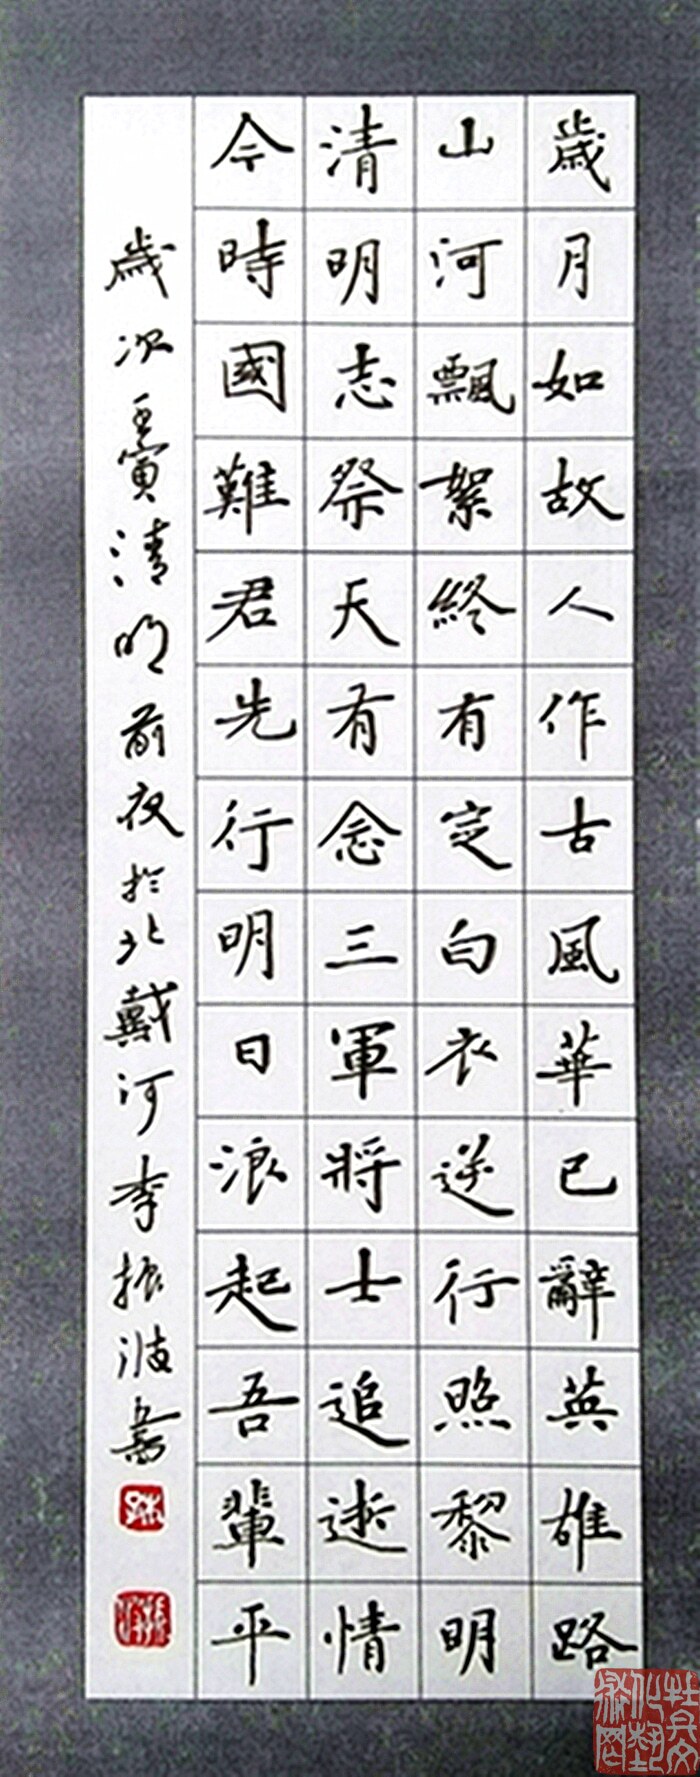 歲月如故人作古風華已辭英雄路
山河飄絮終有定白衣逆行照黎明
清明志祭天有念三軍將士追逝情
今時國難君先行明日浪起吾輩平
歲次壬寅清明前夜於北戴河李振波書